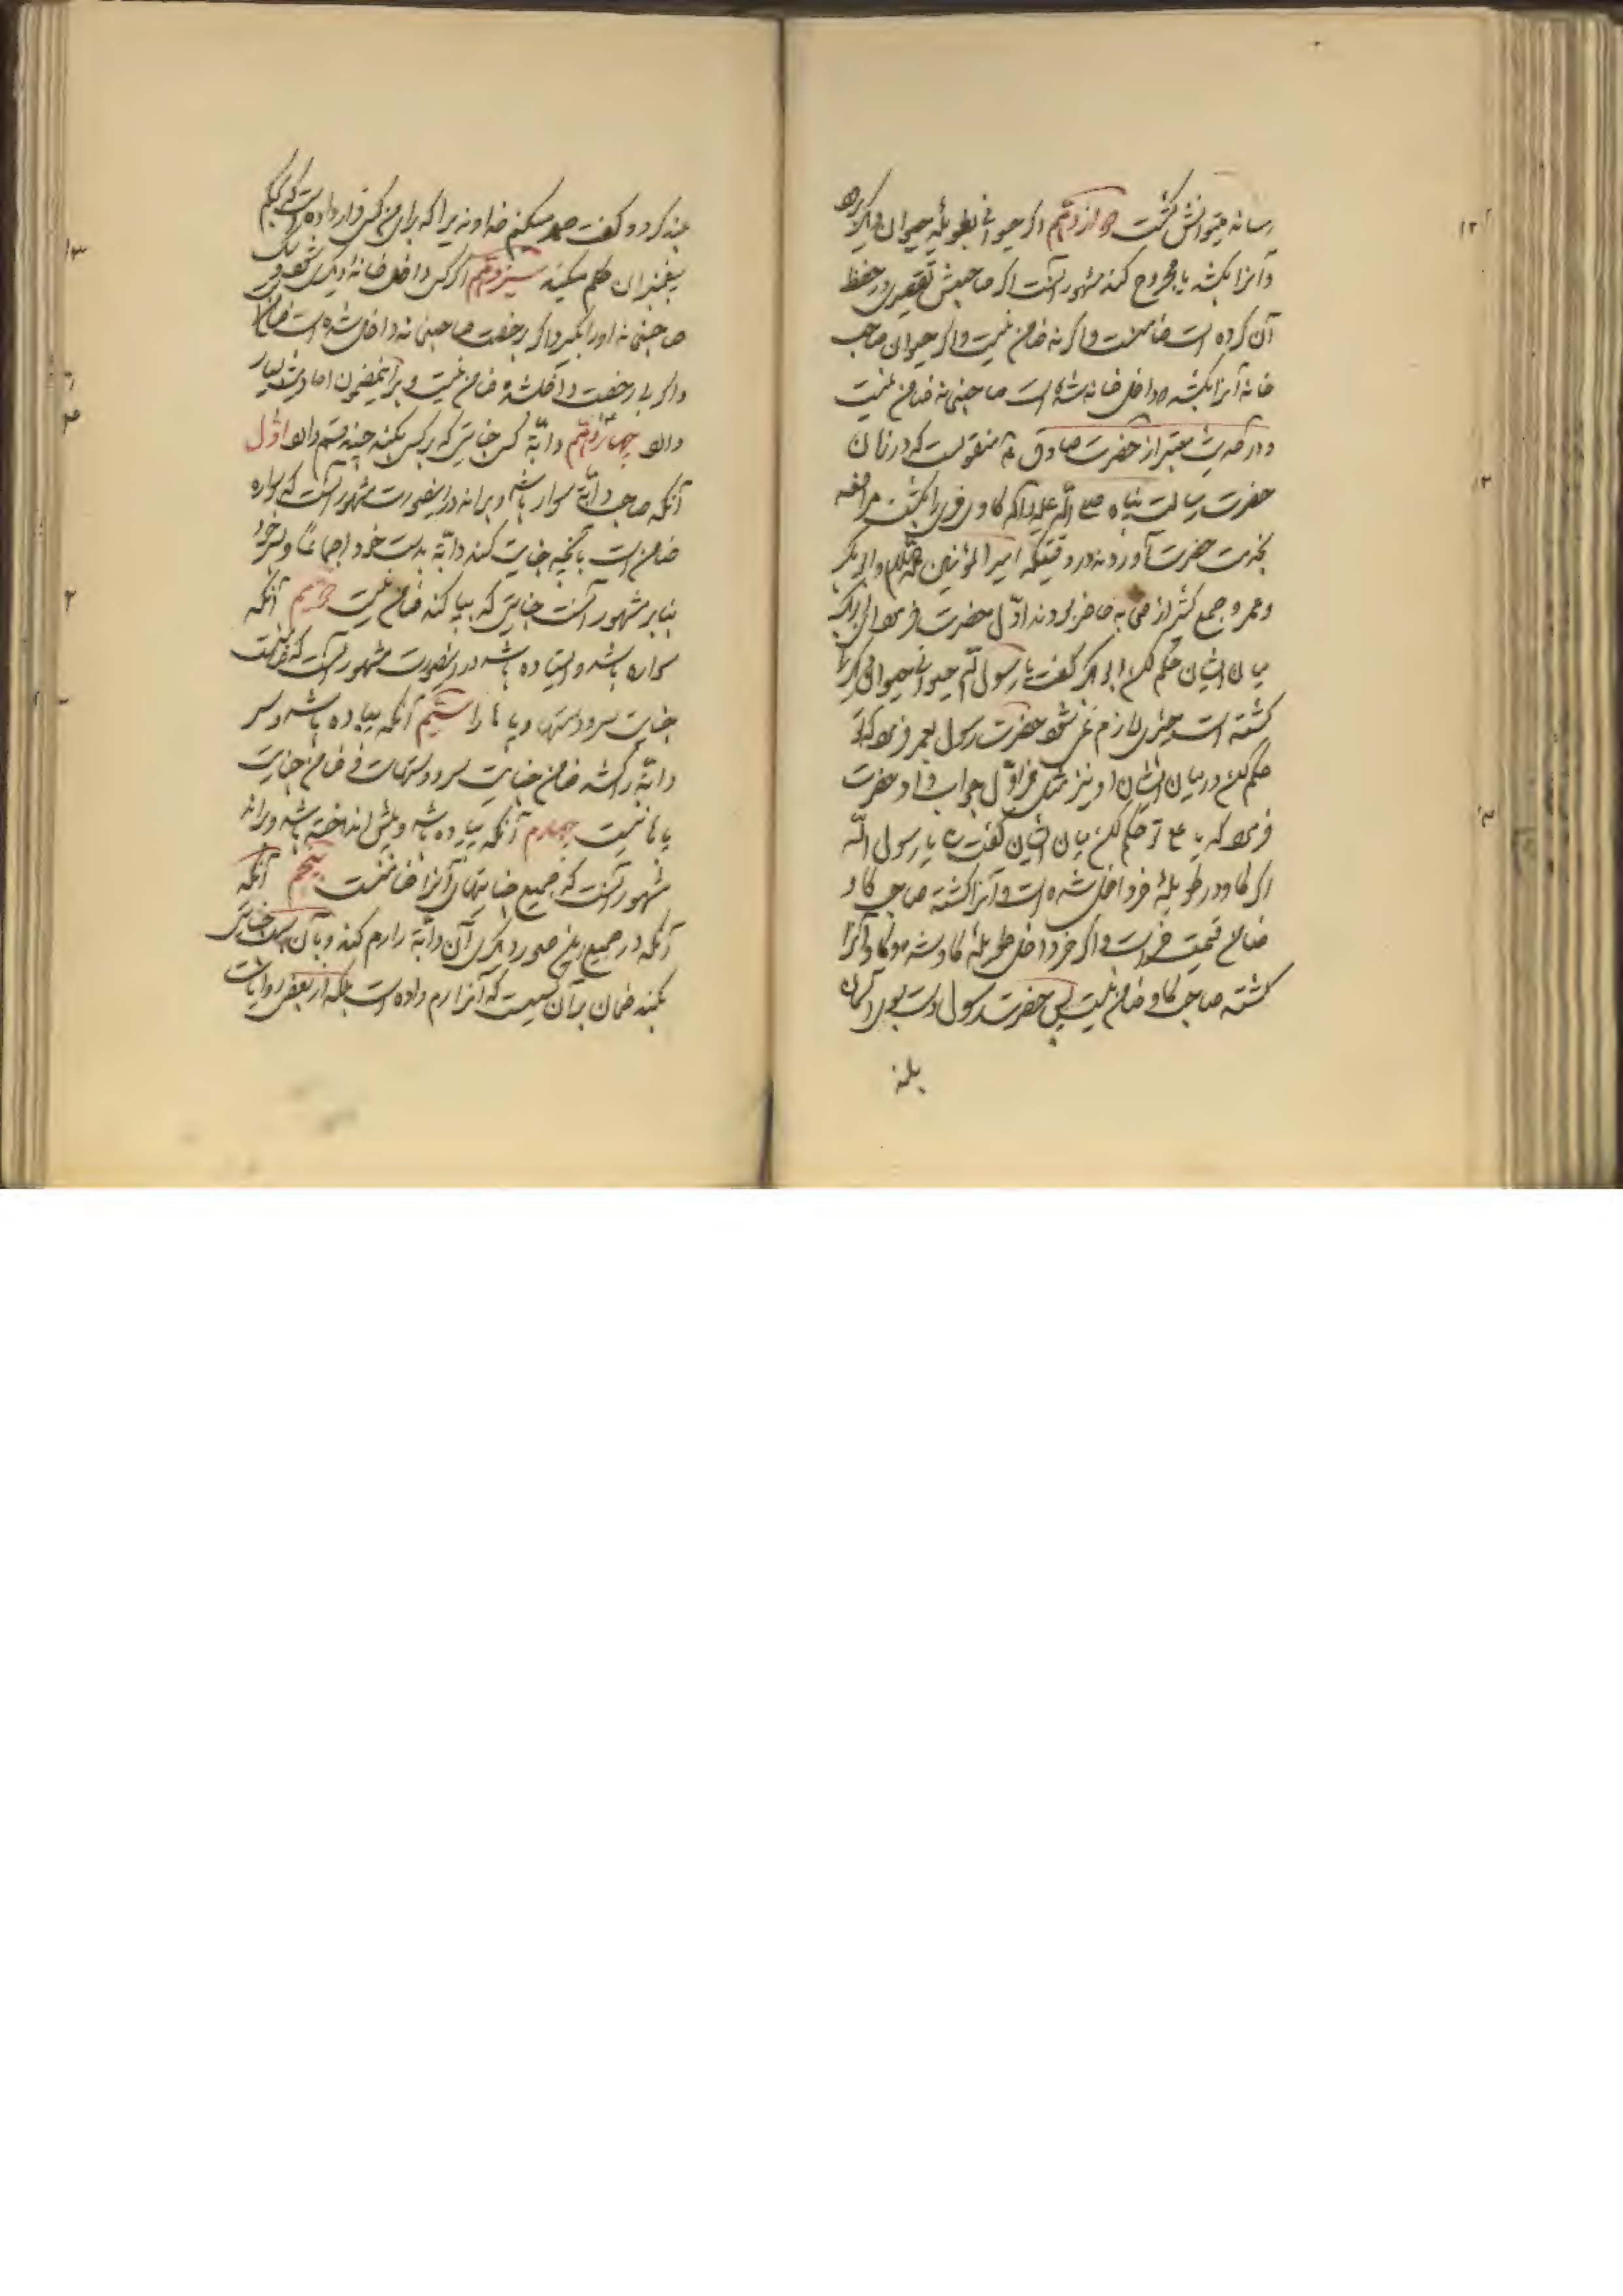 رساند میتوانش کشت دوازدهم اگر حیوانی بطویلهٔ حیوان دیگر رود
و آنرا بکشد یا مجروح کند مشهور آنست اگر صاحبش تقصیر در حفظ
آن کرده است ضامنست و اگر نه ضامن نیست و اگر حیوان صاحب
خانه آنرا بکشد که داخل خانه شده است صاحبخانه ضامن نیست
و در حدیث معتبر از حضرت صادق ع منقولست که در زمان
حضرت رسالت پناه صلی الله علیه و آله گاوی خری را بکشت مرافعه
بخدمت حضرت آوردند در وقتیکه امیر المؤمنین علیه السلام و ابو بکر
و عمر و جمع کثیر از صحابه حاضر بودند اوّل حضرت فرمود ای ابو بکر
میان ایشان حکم کن ابو بکر گفت یا رسول الله حیوانی حیوانی را
کشته است چیزی لازم نمی شود حضرت رسول بعمر فرمود که تو
حکم کن در میان ایشان او نیز مثل اوّل جواب داد حضرت
فرمود که یا علی تو حکم کن میان ایشان گفت یا رسول الله
اگر گاو در طویلهٔ خر داخل شده است و آنرا کشته صاحب گاو
ضامن قیمت خر است و اگر خر داخل طویلهٔ گاو شده و گاو آنرا
کشته صاحب گاو ضامن نیست پس حضرت رسول دست بسوی آسمان
بلند
بلند کرد و گفت حمد میکنم خداوندیرا که برای من کسی قرار داده است که بحکم
پیغمبران حکم میکند سیزدهم اگر کسی داخل خانهٔ دیگری شود و سگ
صاحبخانه او را بگیرد اگر برخصت صاحبخانه داخل شده است ضامن
و اگر بی رخصت داخل شده ضامن نیست و بر اینمضمون احادیث بسیار
وارد چهاردهم دابّهٔ کسی جنایتی که بر کسی بکند چند قسم دارد اوّل
آنکه صاحب دابّه سوار باشد و براند در اینصورت مشهور آنست که سواره
ضامن است بآنچه جنایت کند دابّه بدست خود اجماعًا و بسر خود
بنابر مشهور آنست جنایتی که بپا کند ضامن نیست دوّیم آنکه
سواره باشد و ایستاده باشد در اینصورت مشهور آنست که ضامنست
جنایت سر و دستها و پاها را سیّم آنکه پیاده باشد و سر
دابّه را کشد ضامن جنایت سر و دستهاست و ضامن جنایت
پاها نیست چهارم آنکه پیاده باشد و پیش انداخته باشد و براند
مشهور آنست که جمیع جنایتهای آنرا ضامنست پنجم آنکه
آنکه در جمیع این صور دیگری آن دابّه را رم کند و بآن سبب جنایتی
بکند ضمان بر آن کسیست که آنرا رم داده است بلکه از بعضی روایات